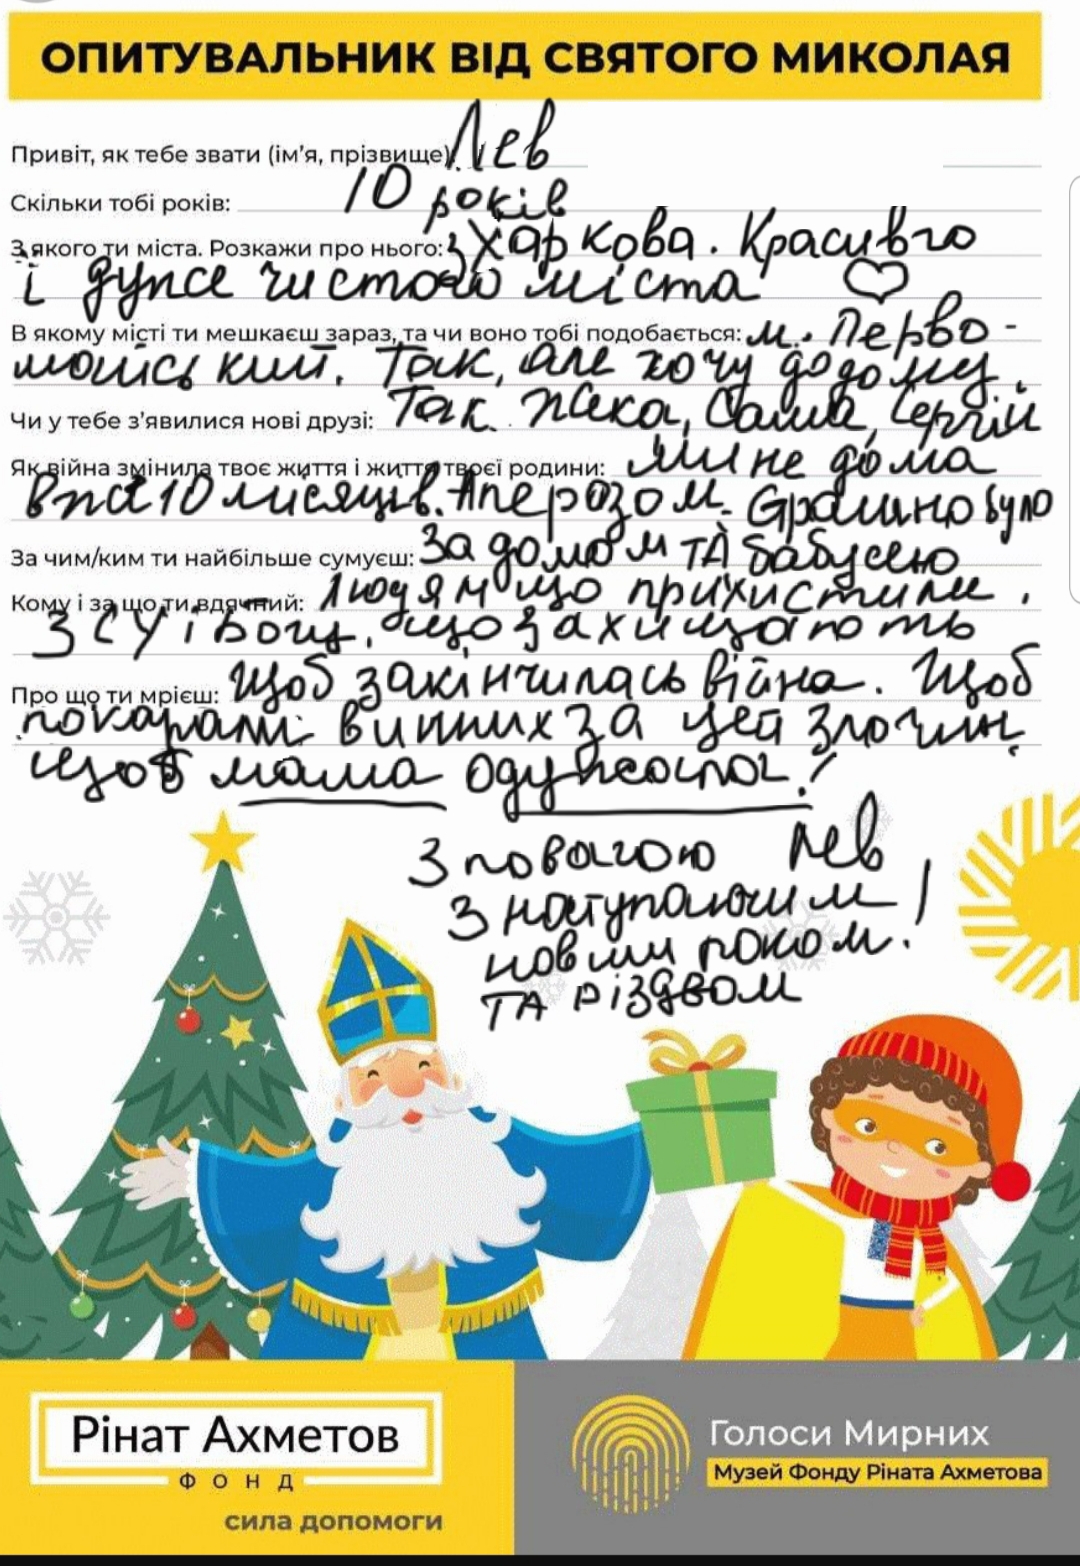 ОПИТУВАЛЬНИК ВІД СВЯТОГО МИКОЛАЯ
Привіт, як тебе звати (ім'я, прізвище): Лев
Скільки тобі років: 10 років
З якого ти міста. Розкажи про нього: з Харкова. Красивго
і дуже чистого міста
В якому місті ти мешкаєш зараз, та чи воно тобі подобається: м. Перво-
майський. Так, але хочу додому.
Чи у тебе з'явилися нові друзі: Так. Жека, Саша, Сергій
Як війна змінила твоє життя і життя твоєї родини: Ми не дома
вже 10 місяців. Але разом. Страшно було
За чим/ким ти найбільше сумуєш: За домом ТА бабусею
Кому і за що ти вдячний: Людям що прихистили.
ЗСУ і Богу, що захищають
Про що ти мрієш: Щоб закінчилась війна. Щоб
покарали винних за цей злочин.
щоб мама одужала!
З повагою Лев
З наступаючим!
новим роком.
ТА різдвом
Рінат Ахметов
ФОНД
сила допомоги
Голоси Мирних
Музей Фонду Ріната Ахметова